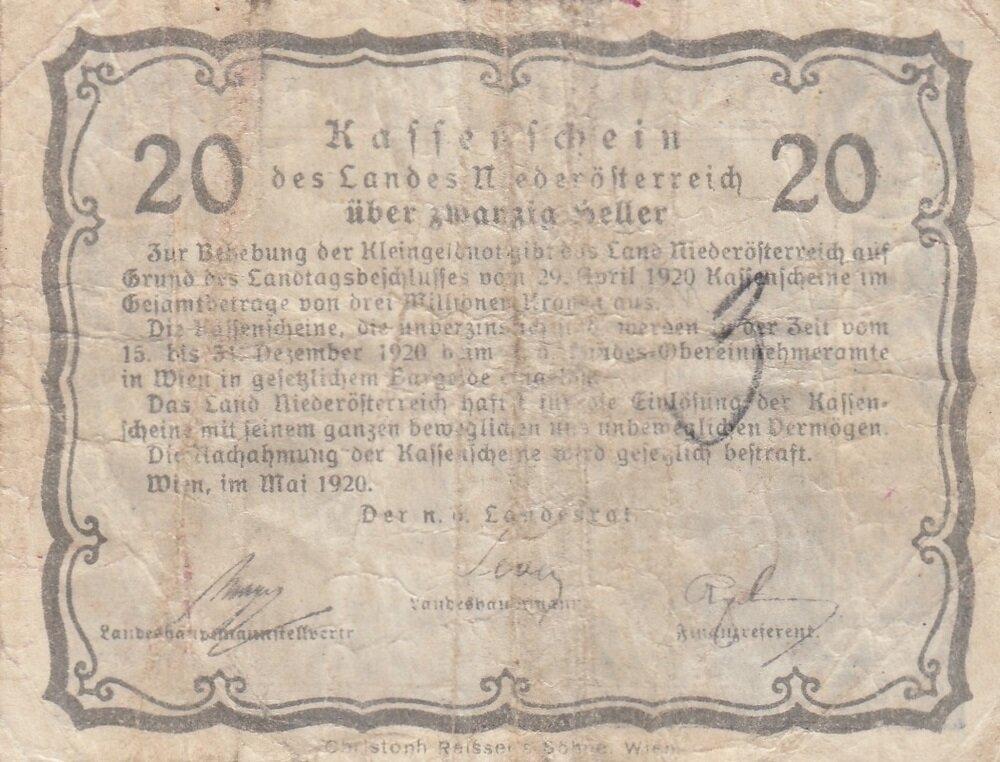 20 20
Kassenschein
des Landes Niederösterreich
über zwanzig Heller
Zur Behebung der Kleingeldnot gibt das Land Niederösterreich auf
Grund des Landtagsbeschlusses vom 29. April 1920 Kassenscheine im
Gesamtbetrage von drei Millionen Kronen aus.
Die Kassenscheine, die unverzinslich sind, werden in der Zeit vom
15. bis 31. Dezember 1920 beim n. ö. Landes-Obereinnehmeramte
in Wien in gesetzlichem Bargelde eingelöst.
Das Land Niederösterreich haftet für die Einlösung der Kassen-
scheine mit seinem ganzen beweglichen und unbeweglichen Vermögen.
Die Nachahmung der Kassenscheine wird gesetzlich bestraft.
Wien, im Mai 1920.
Der n. ö. Landesrat
3
Landeshauptmann
Landeshauptmannstellvertr
Finanzreferent.
Christoph Reisser's Söhne, Wien